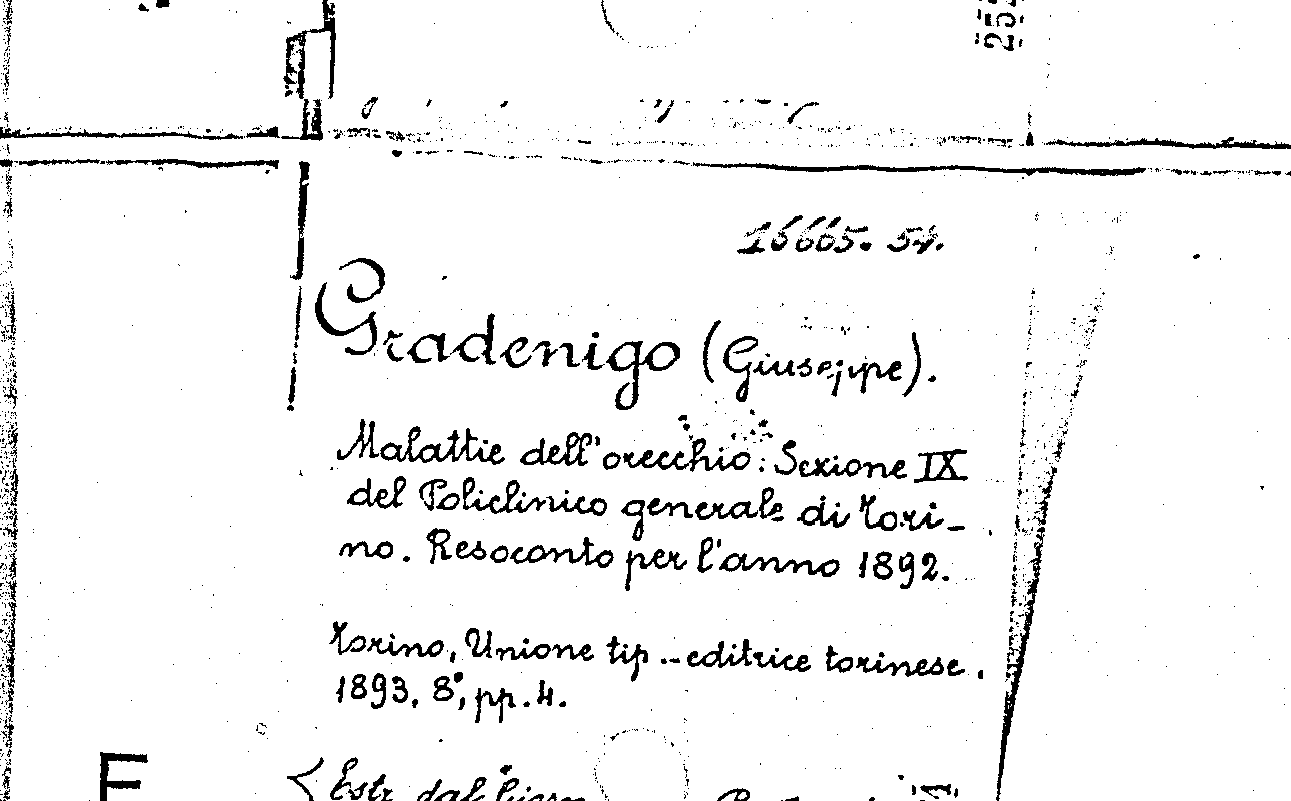 16665. 54.
Gradenigo (Giuseppe).
Malattie dell'orecchio: Sezione IX
del Policlinico generale di Tori-
no. Resoconto per l'anno 1892.
Torino, Unione tip.-editrice torinese.
1893, 8°, pp. 4.
E
Estr. dal